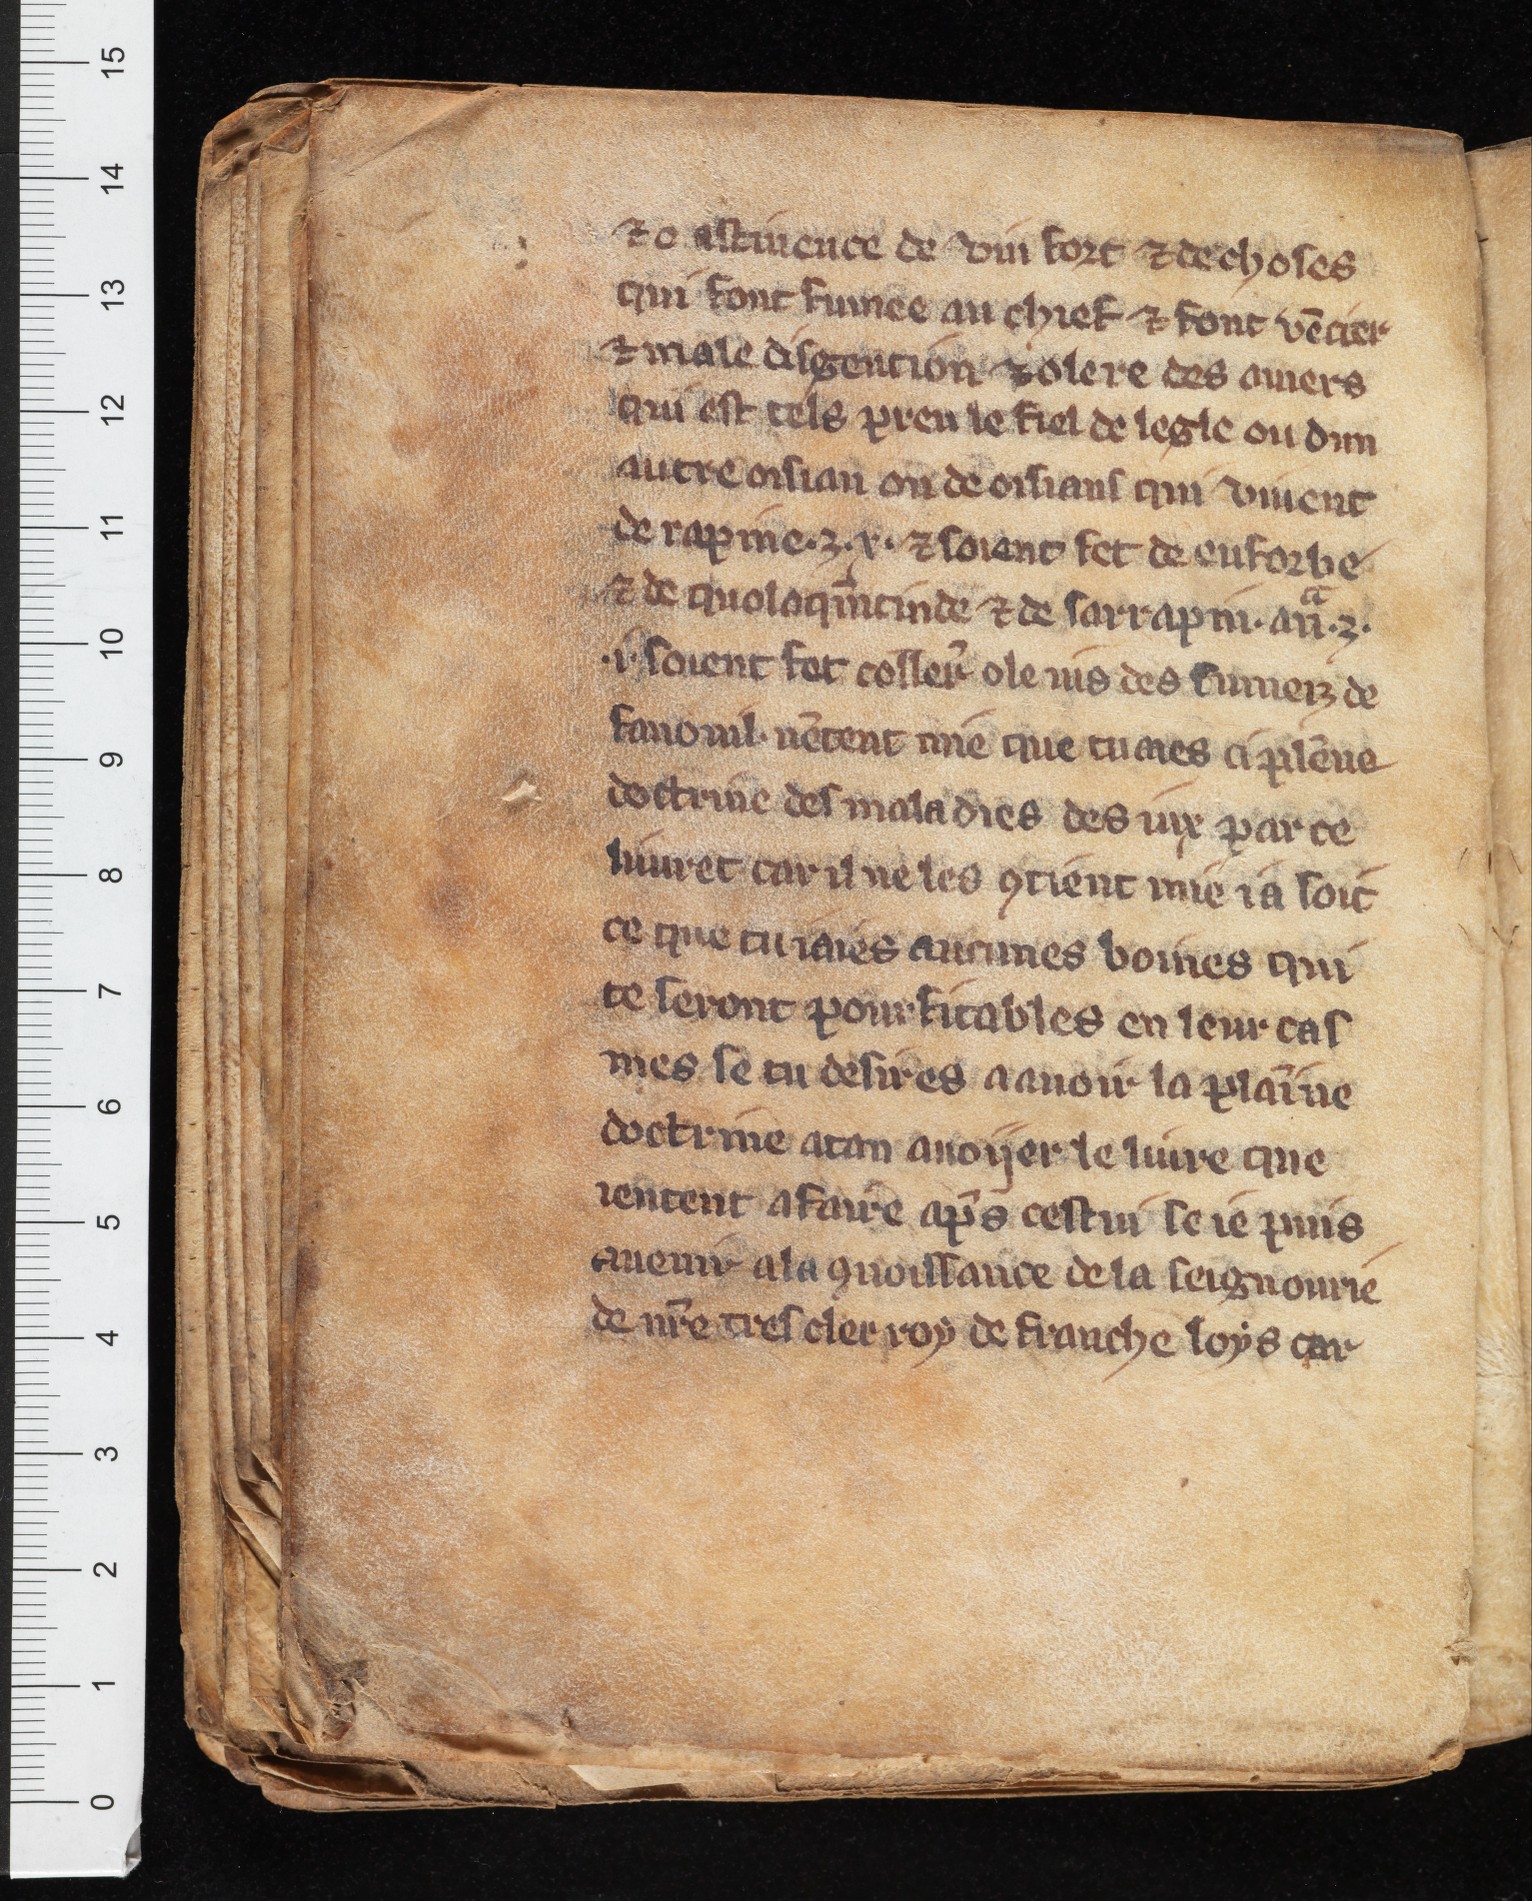 ⁊ o astinence de vin fort ⁊ de choses
qui font fumee au chief ⁊ font vētier
⁊ male disgention ⁊ olere des amers
qui est tels pren le fiel de legle ou dun
autre oisian ou de oisians qui viuent
de rapine·ʒ·x· ⁊ soiant fet de euforbe
⁊ de quoloqintinde ⁊ de sarrapin· an̄a·ʒ·
·i· soient fet coller̄ o le ius des fumierz de
fanouil· nētent mie que tu aies ci plēne
doctrine des maladies des iux par ce
liuret car il ne les ꝯtient mie ia soit
ce que tu i aies aucunes boines qui
te seront pourfitables en leur cas
mes se tu desires a auoir la plaīne
doctrine atan auoijer le liure que
ientent a faire ap̄s cestui se ie puis
auenir a la ꝯnoissance de la seignourie
de nr̄e tres cler roy de franche loys car
15
14
13
12
11
10
9
8
7
6
5
4
3
2
1
0